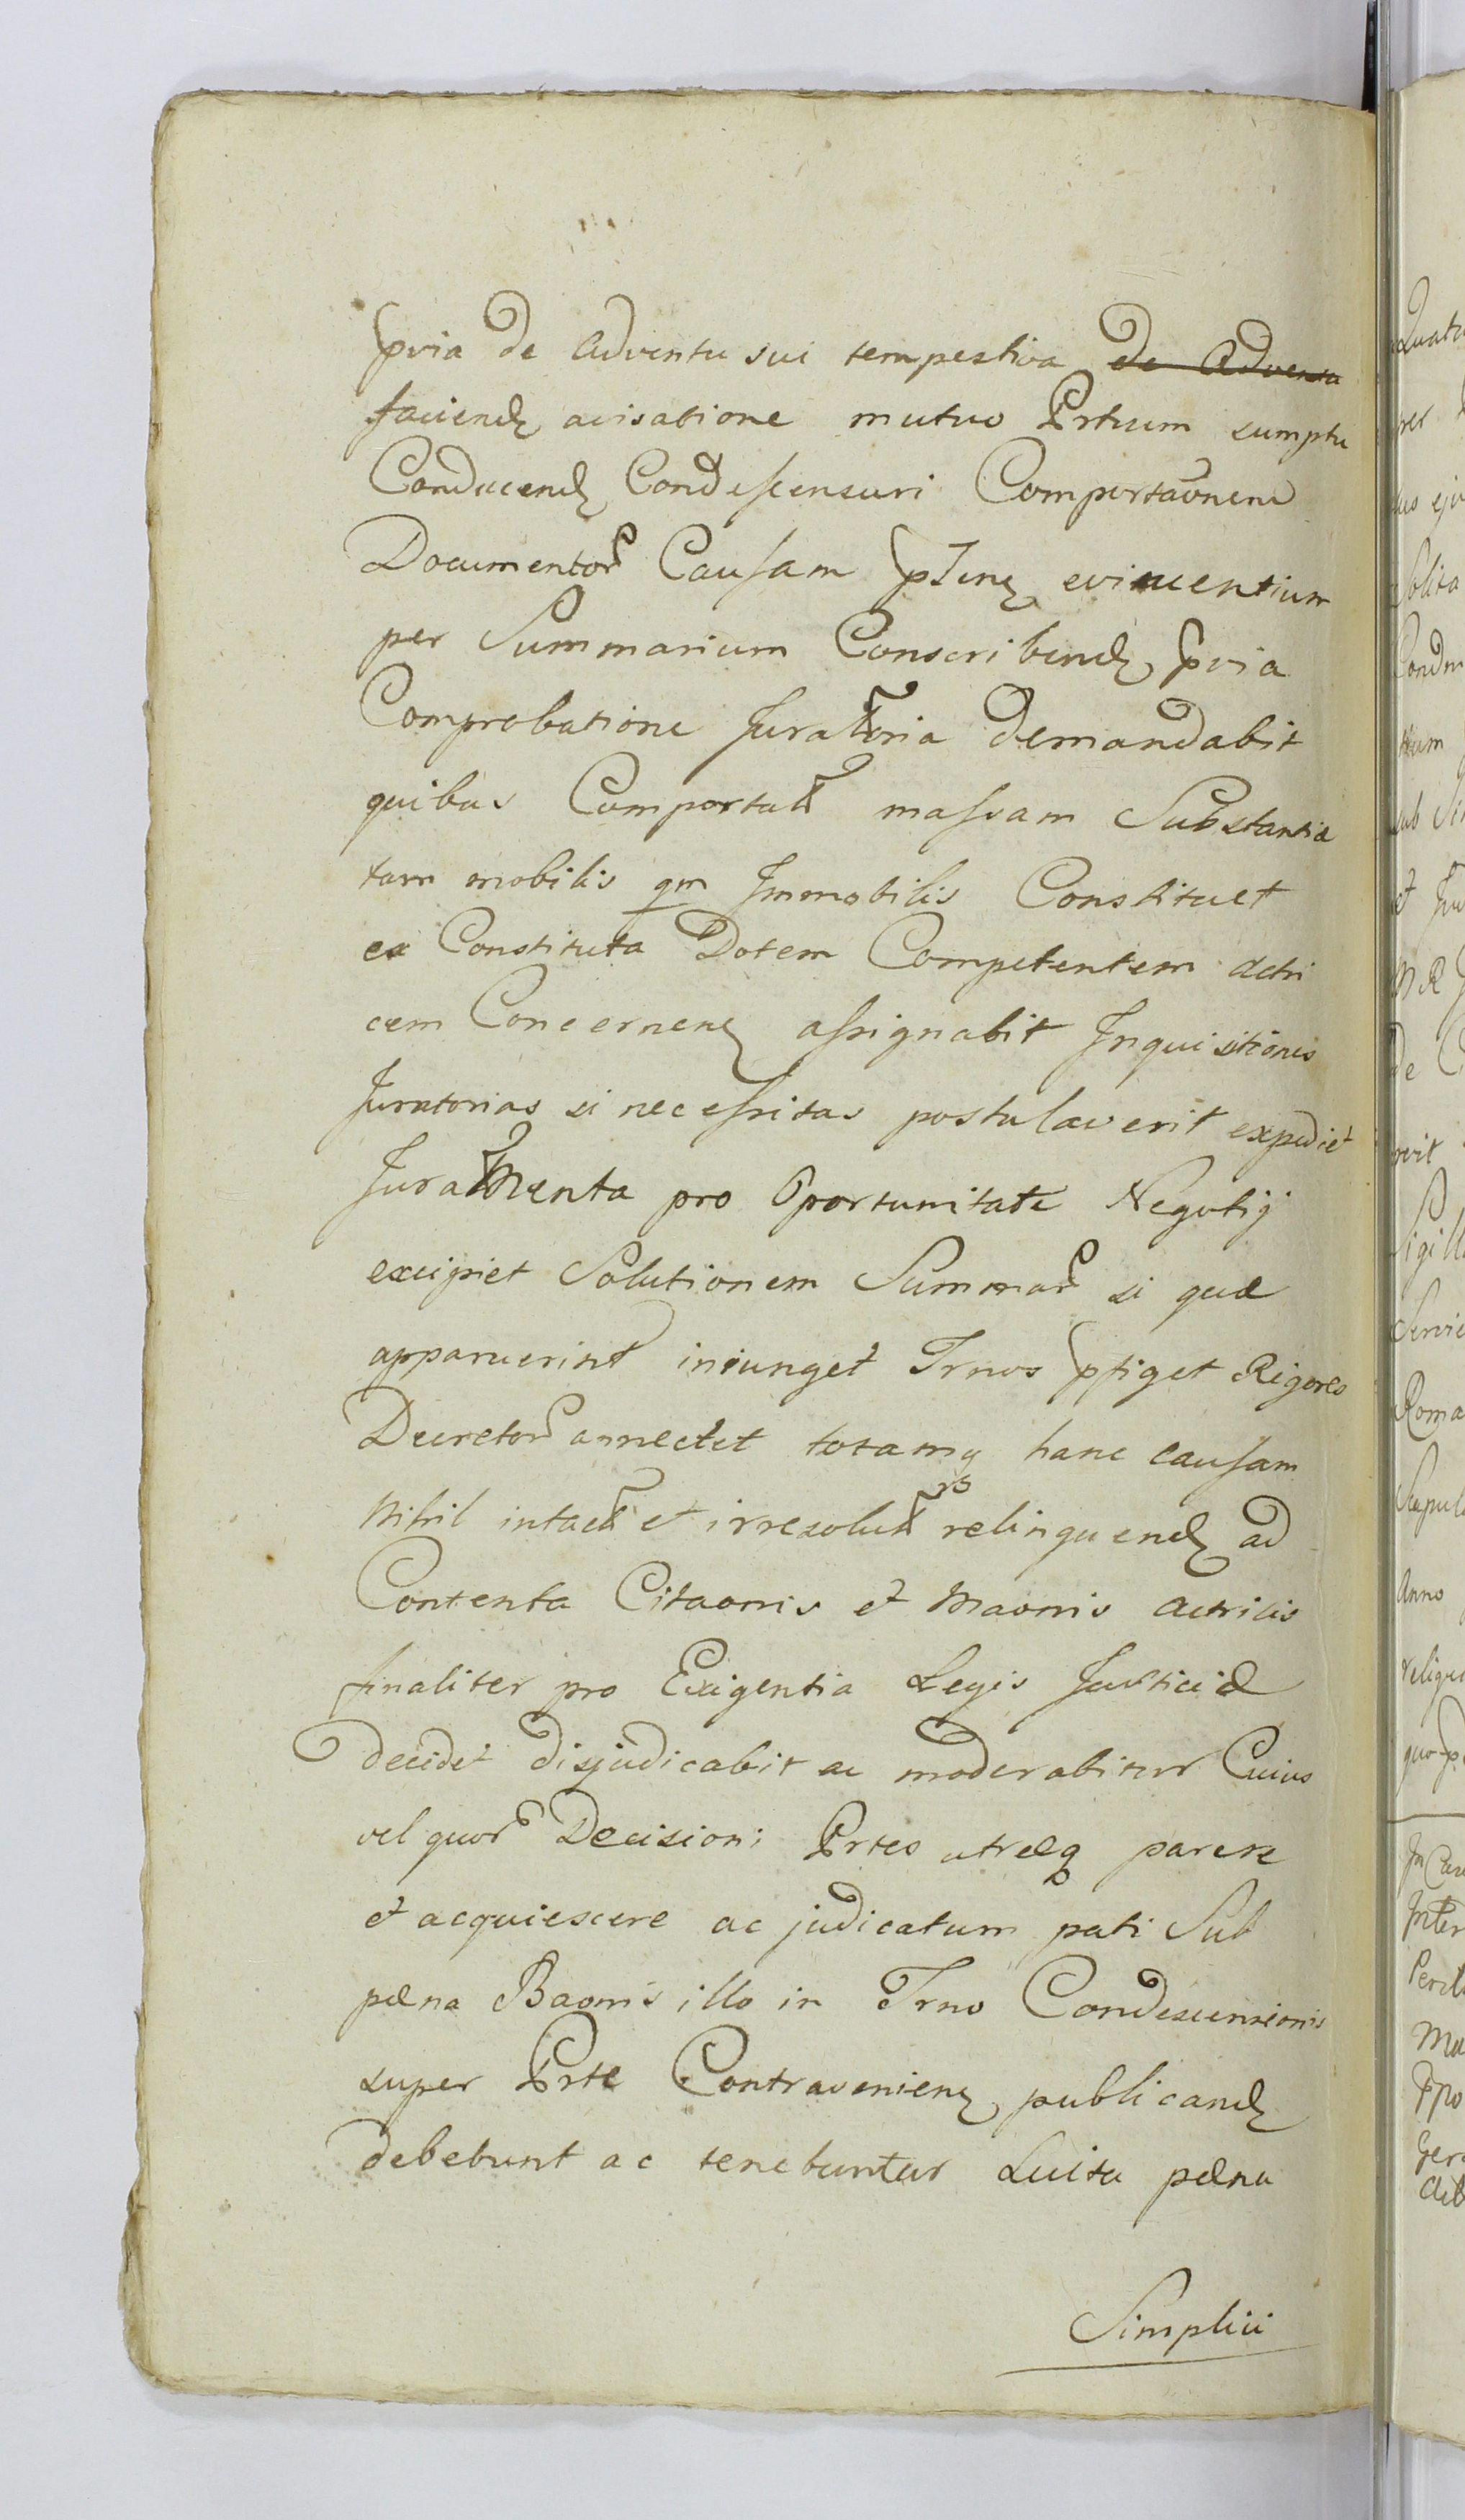 pvia de Adventu sui tempestiva de Adventu
faciend avisatione mutuo Prtium sumptu
Conducend Condescensuri Comportaõnem
Documentor Causam pntem evincentium
per Summarium Conscribend pvia
Comprobatione Juratoria demandabit
quibus Comportat massam Substantiæ
tam mobilis qm Immobilis Constituet
ea Constituta Dotem Competentem Actri
cem Concernen assignabit Inquisitiones
Juratorias si necessitas postulaverit expediet
Juramenta pro Oportunitate Negotij
excipiet Solutionem Summar si quæ
apparuerint iniunget Trnos pfiget Rigores
Decretor annectet totamq hanc causam
Nihil intact et irresolut relinquend ad
Contenta Citaonis et Maonis actricis
finaliter pro Exigentia Legis Justiciæ
decidet disjudicabit ac moderabitur Cuius
vel quor Decisioni Prtes utræq parere
et acquiescere ac judicatum pati Sub
pæna Baonis illo in Trno Condescensionis
super Prte Contravenien publicand
debebunt ac tenebuntur Luita pæna
Simplici